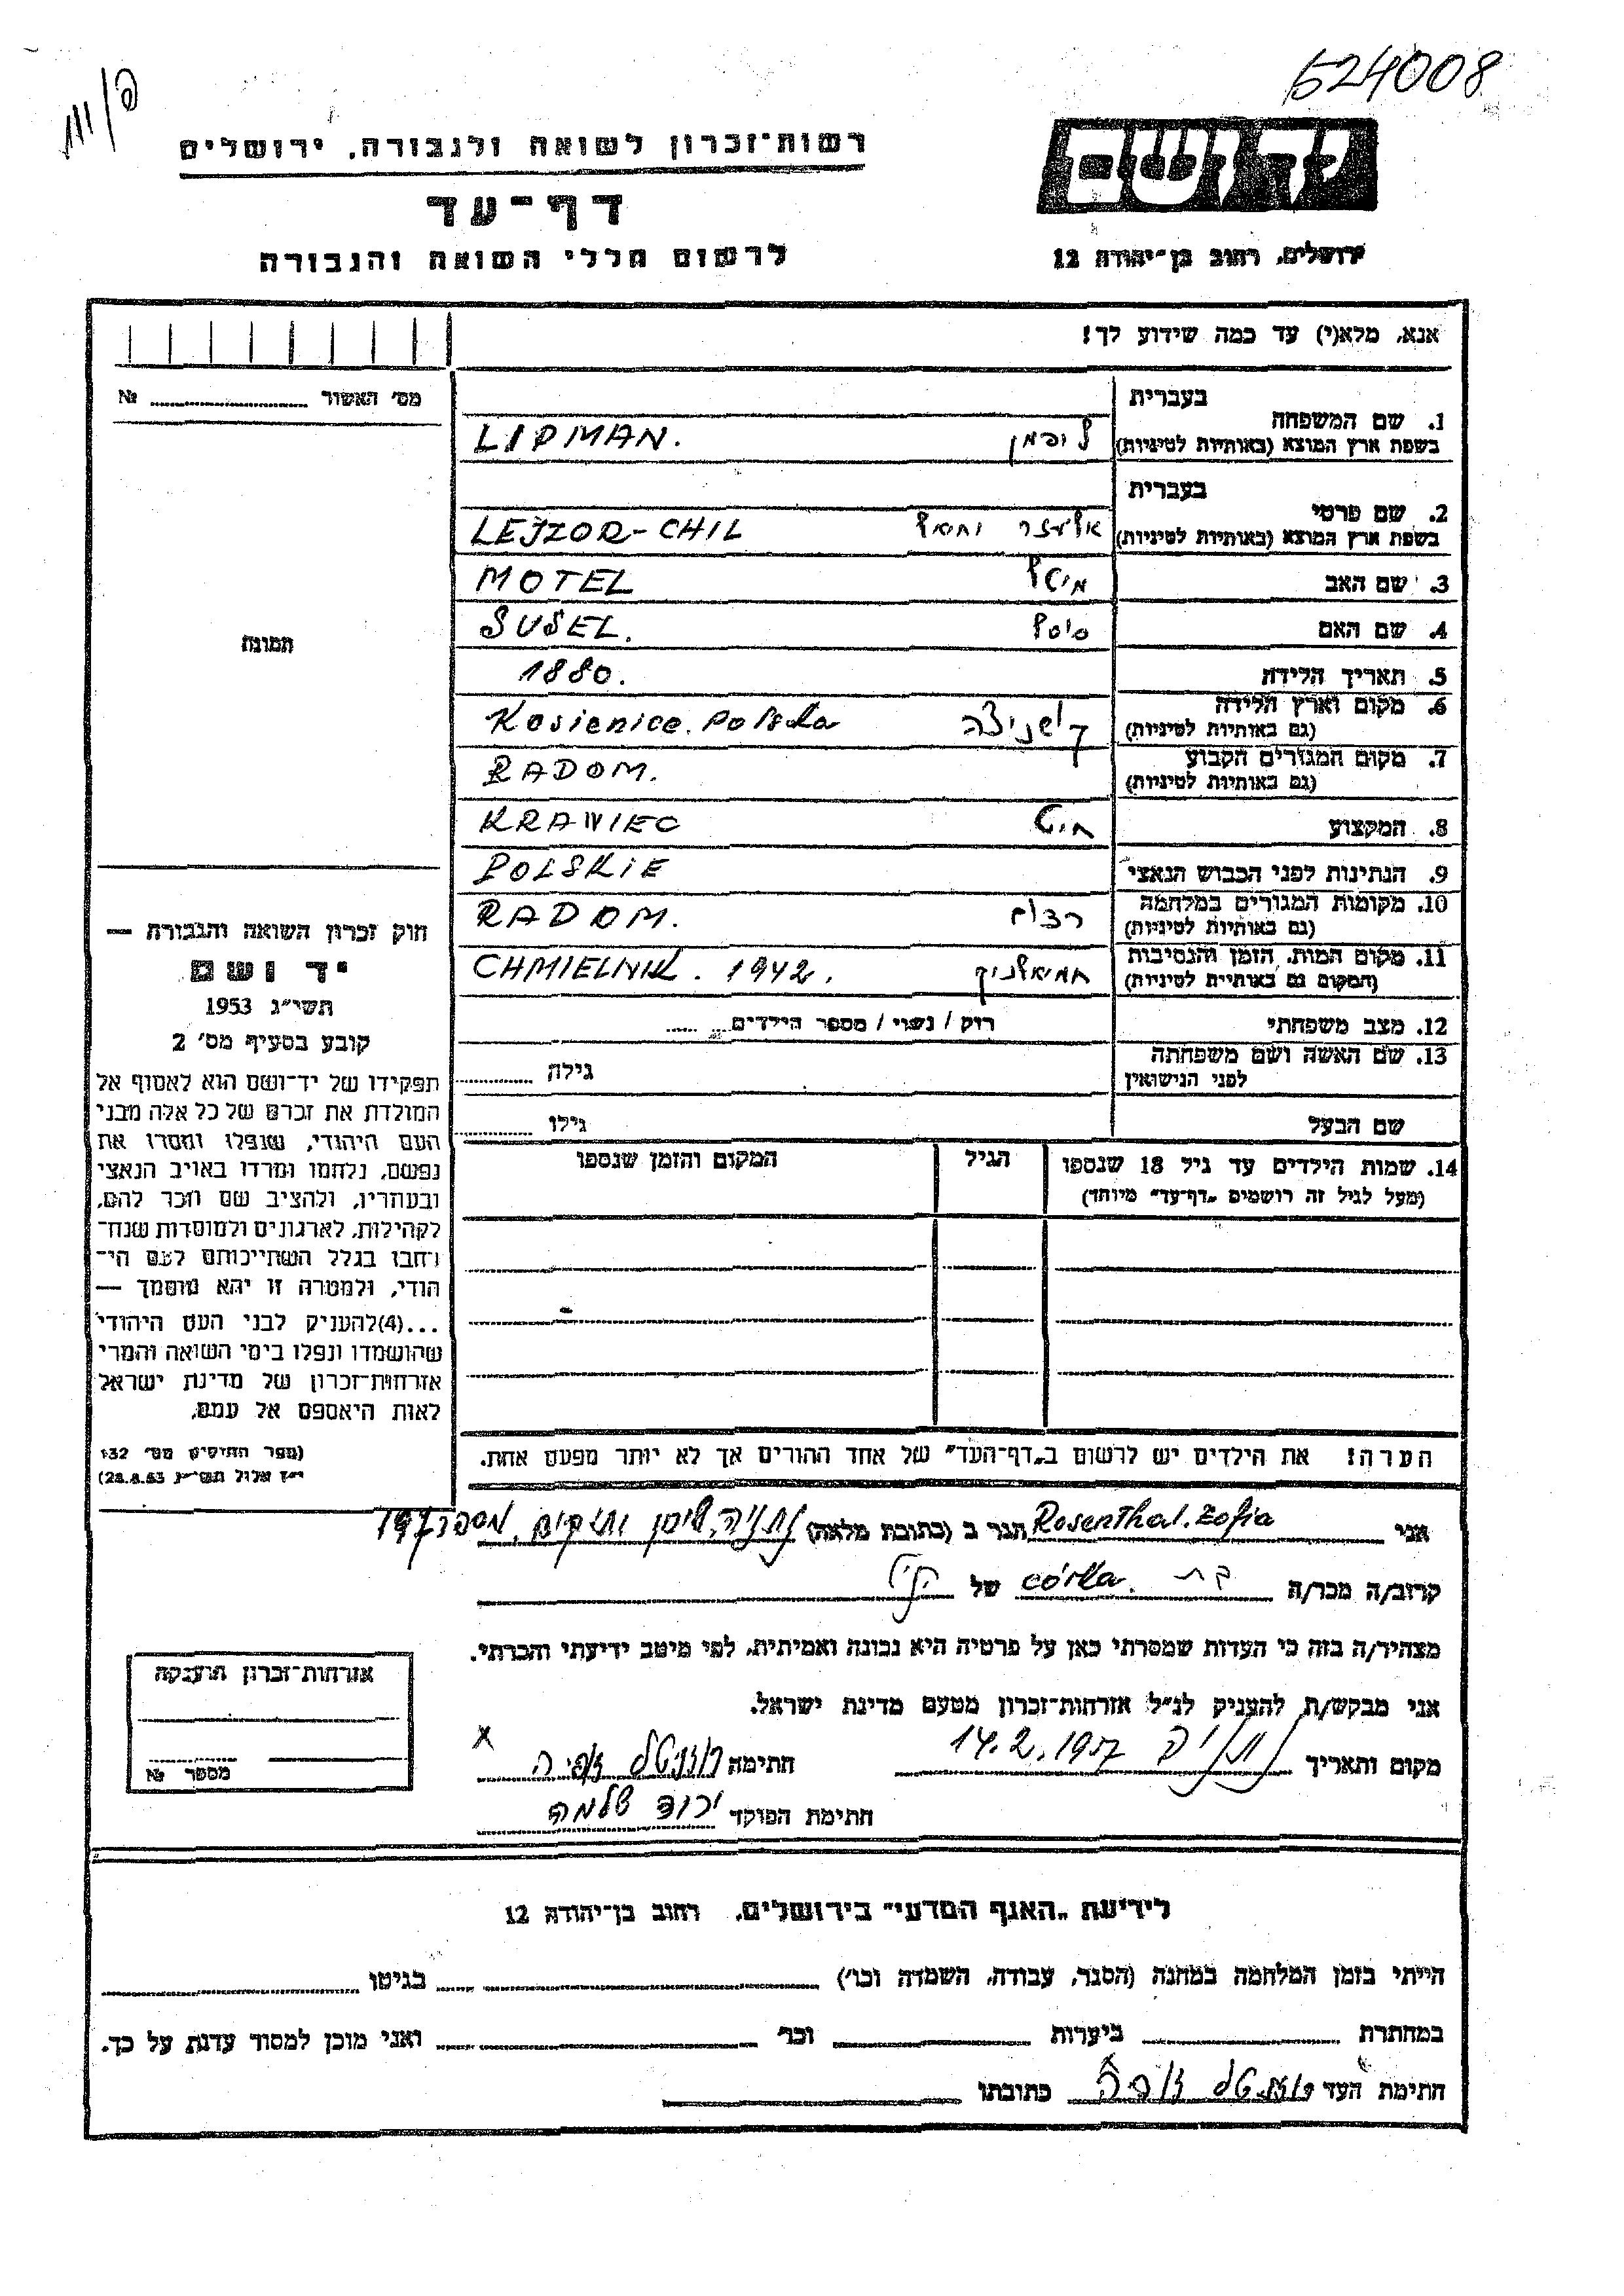 624008
רשות־זכרון לשואה ולגבורה, ירושלים
יד ושם
דף־עד
לרשום חללי השואה והגבורה
ירושלים, רחוב בן־יהודה 12
אנא, מלא(י) עד כמה שידוע לך!
מס׳ האשור № 
1. שם המשפחה
בעברית
בשפת ארץ המוצא (באותיות לטיניות)
LIPMAN. ליפמן
2. שם פרטי
בעברית
בשפת ארץ המוצא (באותיות לטיניות)
LEJZOR-CHIL אליעזר
3. שם האב MOTEL
4. שם האם SUSEL.
5. תאריך הלידה 1880.
6. מקום וארץ הלידה
(גם באותיות לטיניות)
Kosienice. Polska קושניצה
7. מקום המגורים הקבוע
(גם באותיות לטיניות)
RADOM.
8. המקצוע KRAWIEC חייט
9. הנתינות לפני הכבוש הנאצי POLSKIE
10. מקומות המגורים במלחמה
(גם באותיות לטיניות)
RADOM. רדום
11. מקום המות, הזמן והנסיבות
(המקום גם באותיות לטיניות)
CHMIELNIK. 1942. חמיאלניק
12. מצב משפחתי רוק / נשוי / מספר הילדים
13. שם האשה ושם משפחתה
לפני הנישואין
גילה
שם הבעל גילו
14. שמות הילדים עד גיל 18 שנספו
(מעל לגיל זה רושמים „דף־עד״ מיוחד)
הגיל
המקום והזמן שנספו
הערה! את הילדים יש לרשום ב„דף־העד״ של אחד ההורים אך לא יותר מפעם אחת.
תמונה
חוק זכרון השואה והגבורה —
יד ושם
תשי״ג 1953
קובע בסעיף מס׳ 2
תפקידו של יד־ושם הוא לאסוף אל
המולדת את זכרם של כל אלה מבני
העם היהודי, שנפלו ומסרו את
נפשם, נלחמו ומרדו באויב הנאצי
ובעוזריו, ולהציב שם וזכר להם,
לקהילות, לארגונים ולמוסדות שנח־
רבו בגלל השתייכותם לעם הי־
הודי, ולמטרה זו יהא מוסמך —
...(4)להעניק לבני העם היהודי
שהושמדו ונפלו בימי השואה והמרי
אזרחות־זכרון של מדינת ישראל
לאות היאספם אל עמם.
(ספר החוקים מס׳ 132
י״ז אלול תשי״ג 28.8.53)
אני Rosenthal. Zofia הגר ב (כתובת מלאה) נתניה, שיכון ותיקים,
קרוב/ה מכר/ה בת córka. של
מצהיר/ה בזה כי העדות שמסרתי כאן על פרטיה היא נכונה ואמיתית, לפי מיטב ידיעתי והכרתי.
אני מבקש/ת להעניק לנ״ל אזרחות־זכרון מטעם מדינת ישראל.
מקום ותאריך נתניה 14.2.1957 חתימה רוזנטל זופיה x
חתימת הפוקד שלמה
אזרחות־זכרון הוענקה
מספר №
לידיעת „האגף המדעי״ בירושלים, רחוב בן־יהודה 12
הייתי בזמן המלחמה במחנה (הסגר, עבודה, השמדה וכו׳) בגיטו
במחתרת ביערות וכו׳ ואני מוכן למסור עדות על כך.
חתימת העד רוזנטל זופיה כתובתו